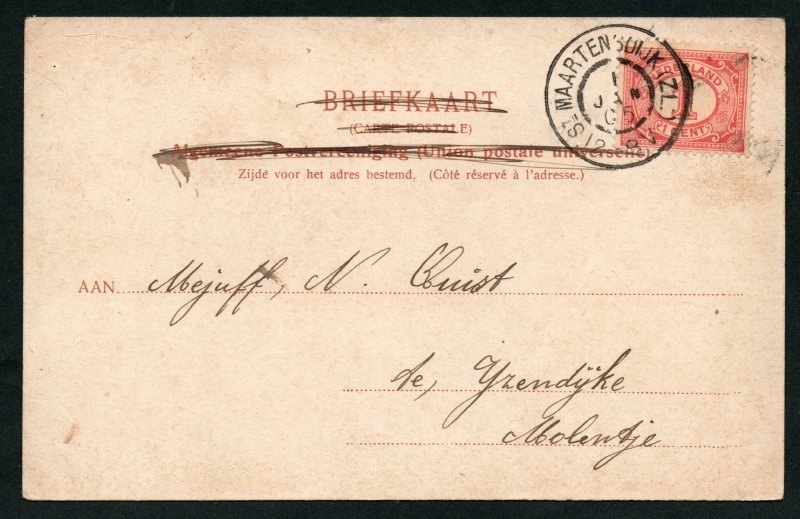 BRIEFKAART
(CARTE POSTALE)
Algemeene Postvereeniging (Union postale universelle)
Zijde voor het adres bestemd. (Côté réservé à l'adresse.)
ST MAARTENSDIJK (ZL.)
1
JAN
12-8V
NEDERLAND
1
1 CENT
AAN Mejuff, N. Quist
te, Yzendijke
Molentje